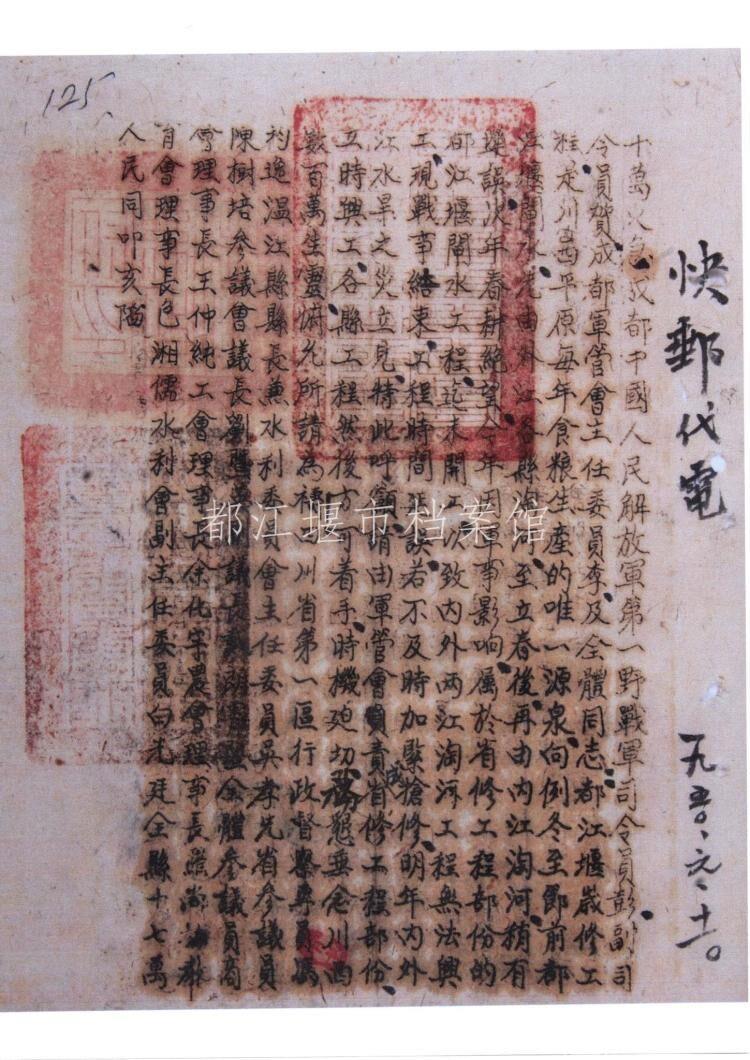 快郵代電
125
十萬火急成都中國人民解放軍第一野戰軍司令員彭副司
令員賀成都軍管會主任委員李及全體同志都江堰歲修工
程是川西平原每年食粮生產的唯一源泉向例冬至節前都
江堰閘水先由外江各縣淘河至立春後再由內江淘河稍有
遲誤次年春耕絕望今年因軍事影响屬於省修工程部份的
都江堰閘水工程迄未開工次致內外兩江淘河工程無法興
工現戰事結束工程時間 誤若不及時加緊搶修明年內外
江水旱之災立見特此呼籲請由軍管會負責省修工程部份
立時興工各縣工程然後方可着手時機廹切 懇垂念川西
數百萬生靈俯允所請為禱 川省第一區行政督察專員馮
均逸溫江縣縣長兼水利委員會主任委員吳孝先省參議員
陳樹培參議會議長劉 議長 全體參議員商
會理事長王仲純工會理事長余化宇農會理事長羅 教
育會理事長包湘儒水利會副主任委員向光廷全縣十七萬
人民同叩亥
一九五〇、元、十一。
都江堰市档案馆